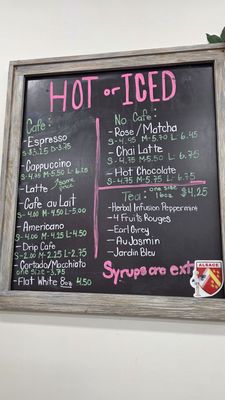 HOT or ICED
Cafe:
- Espresso
S $3.25 D-3.75
- Cappuccino
S - 4.75 M-5.50 L 6.25
- Latte same price
- Cafe au Lait
S - 4.00 M - 4.50 L - 5.00
- Americano
S - 4.00 M - 4.25 L - 4.50
- Drip Cafe
S - 2.00 M - 2.25 L - 2.75
- Cortado/Macchiato
one size - 3.75
- Flat White 8oz 4.50
No Cafe:
- Rose / Matcha
S - 4.95 M - 5.70 L 6.45
- Chai Latte
S - 4.75 M 5.50 L 6.75
- Hot Chocolate
S - 4.75 M - 5.75 L 6.75
Tea: one size 16oz $4.25
- Herbal Infusion Peppermint
- 4 Fruits Rouges
- Earl Grey
- Au Jasmin
- Jardin Bleu
Syrups are ext
ALSACE